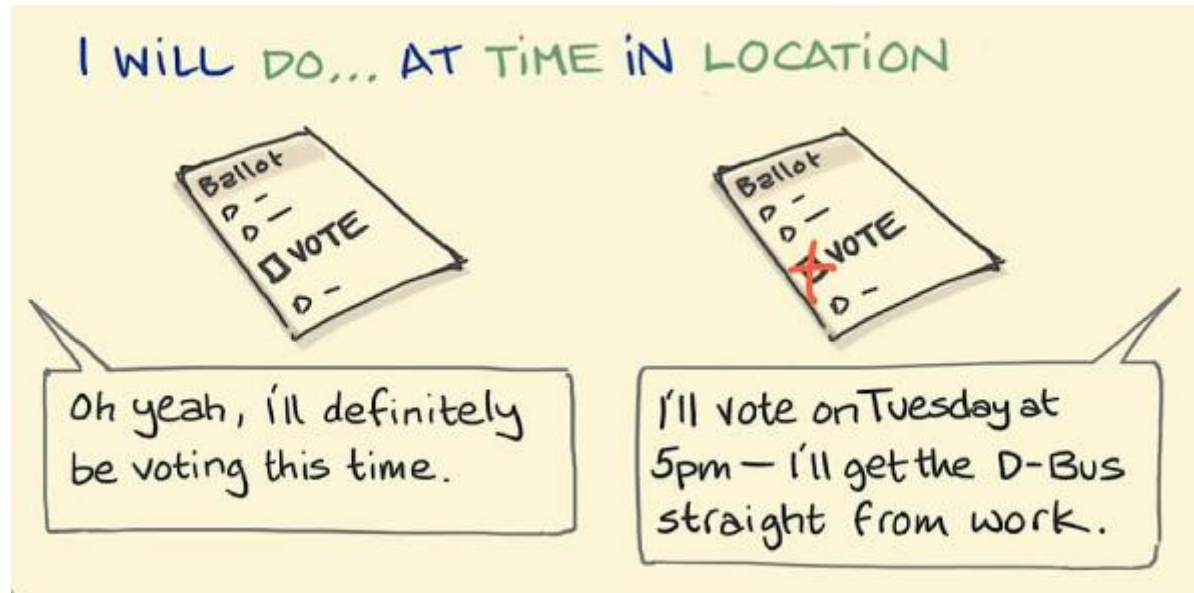 I WILL DO... AT TIME IN LOCATION
Ballot
VOTE
Ballot
VOTE
Oh yeah, i'll definitely
be voting this time.
I'll vote on Tuesday at
5pm — I'll get the D-Bus
straight from work.